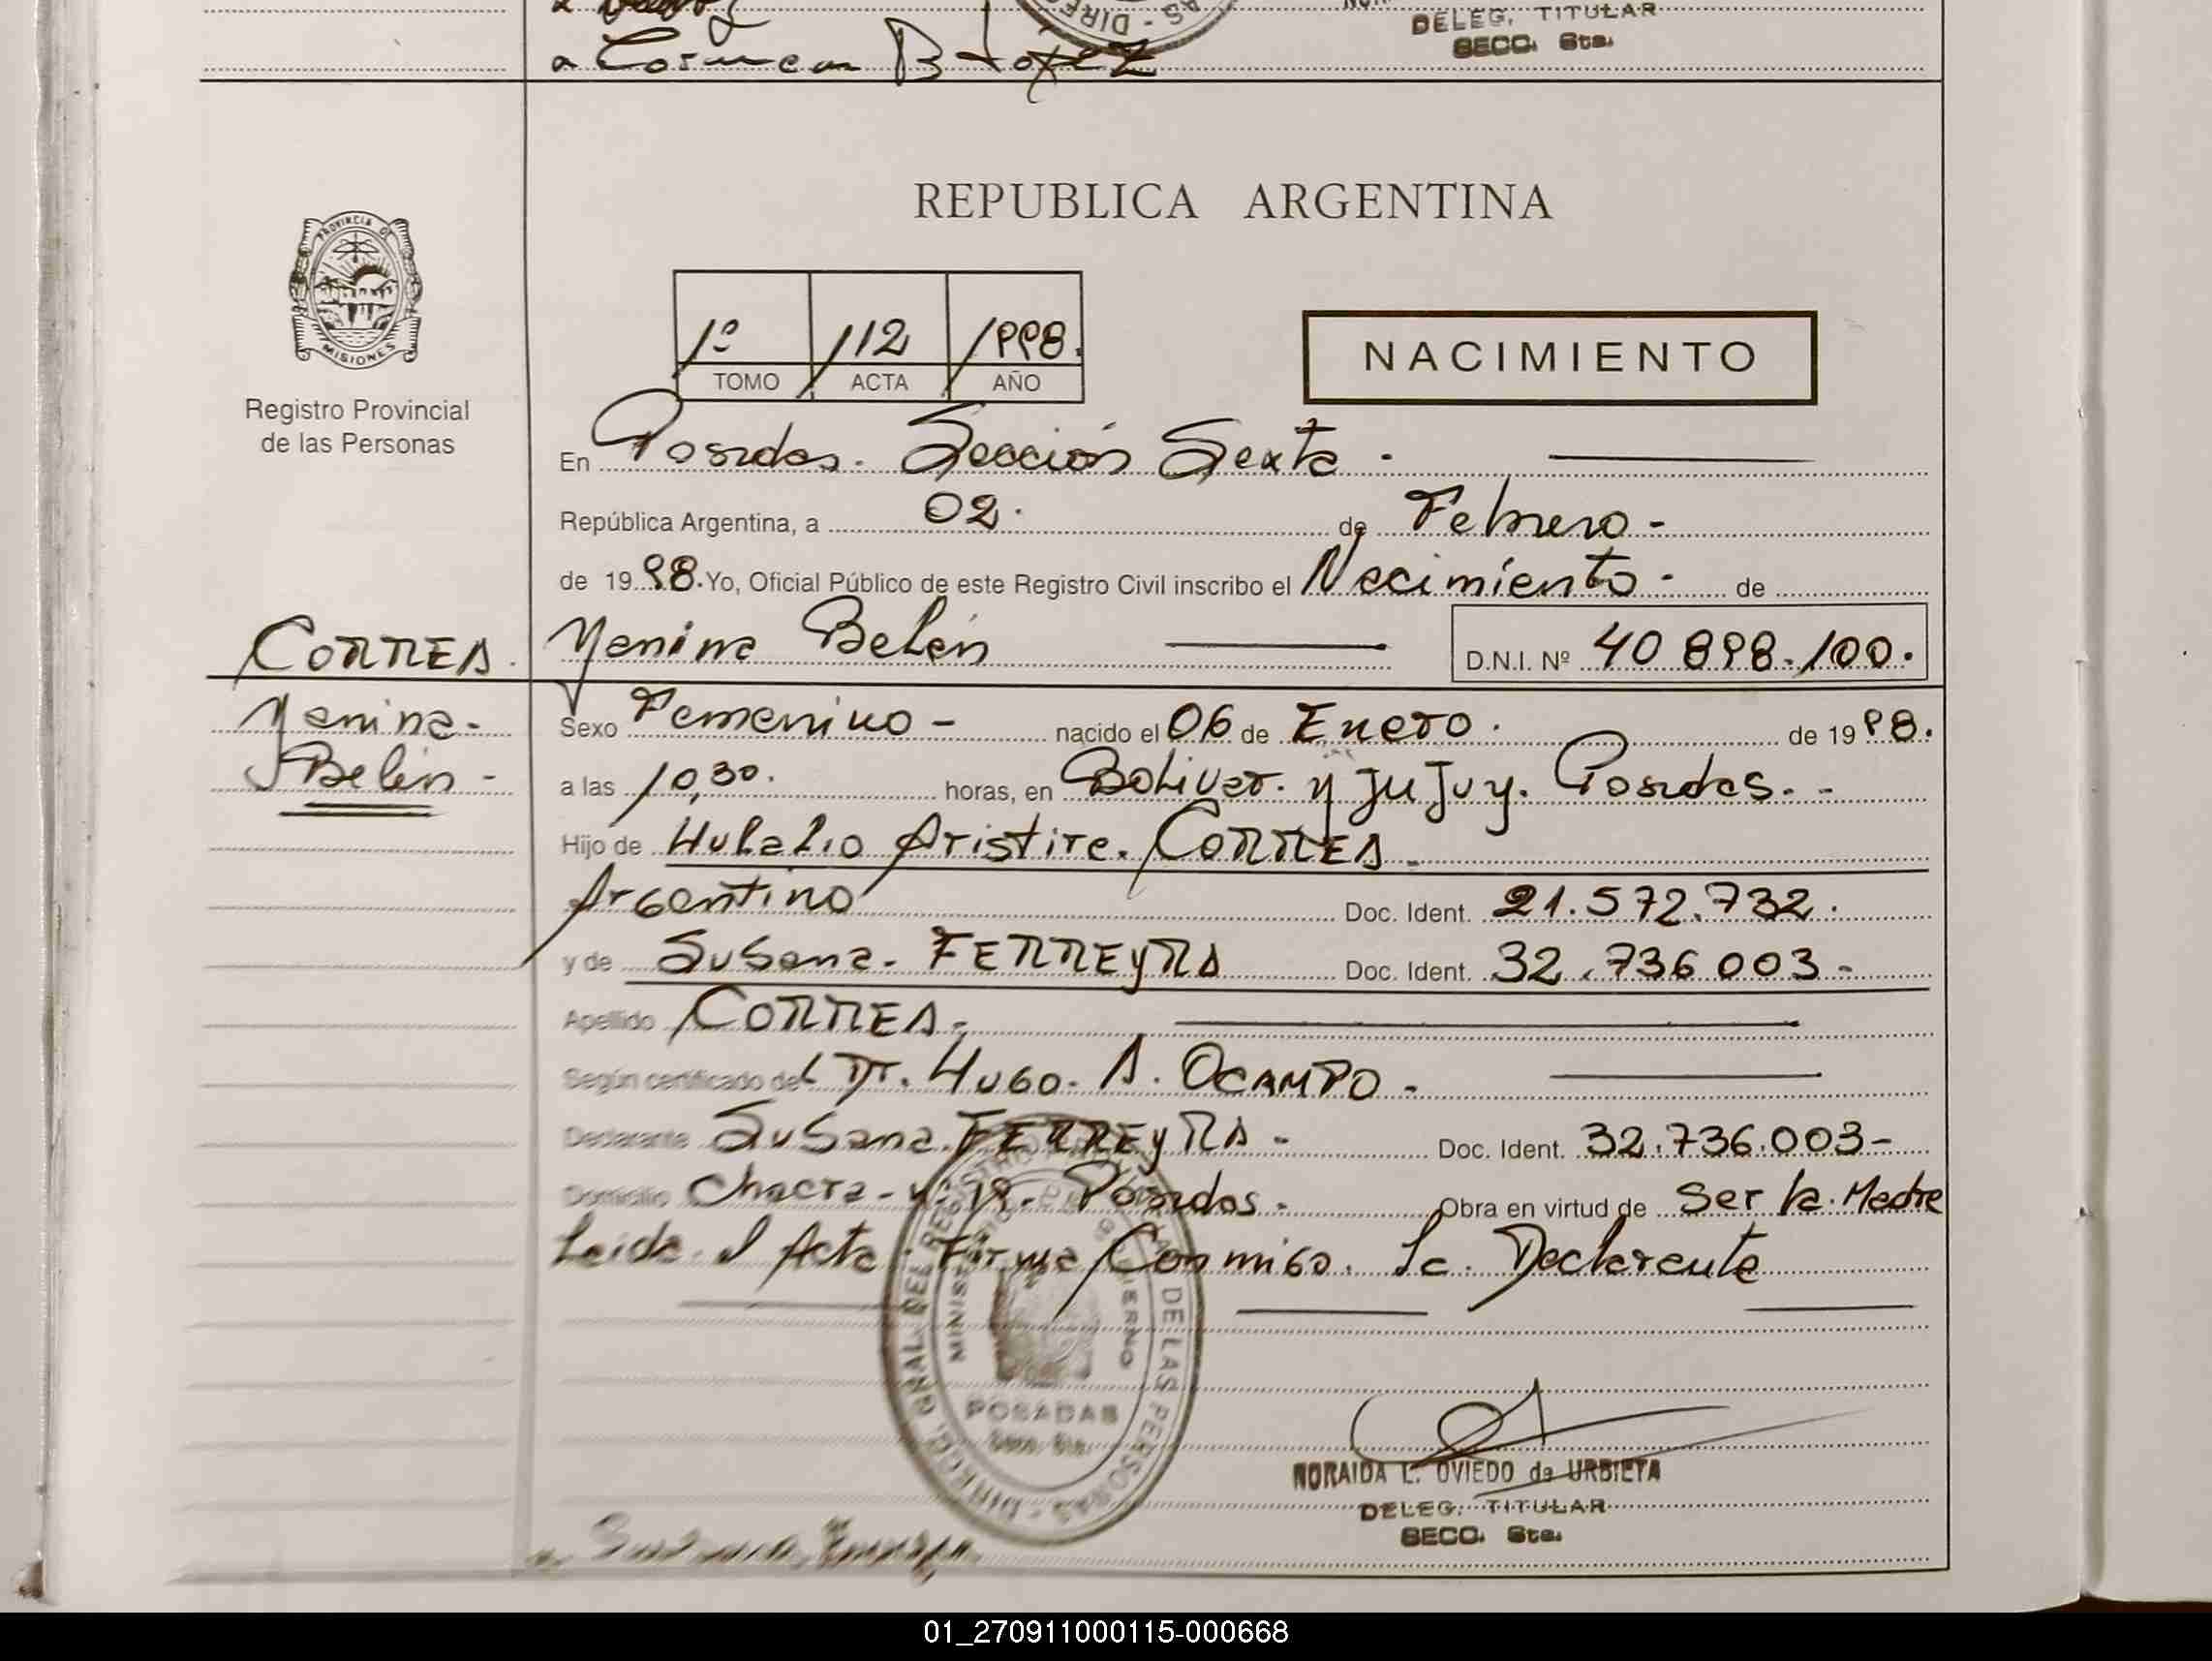 DELEG. TITULAR
SECC. 6ta.
REPUBLICA ARGENTINA
PROVINCIA DE
MISIONES
Registro Provincial
de las Personas
1º 112 1998.
TOMO ACTA AÑO
NACIMIENTO
En Posadas. Sección Sexta.
República Argentina, a 02. de Febrero-
de 1998. Yo, Oficial Público de este Registro Civil inscribo el Nacimiento- de
CORREA. Yanina Belén D.N.I. Nº 40 898.100.
Yanina- Sexo Femenino- nacido el 06 de Enero. de 1998.
Belén- a las 10,30. horas, en Bolivar. y Jujuy. Posadas.-
Hijo de Hulalio Aristire. CORREA.
Argentino Doc. Ident. 21.572.732.
y de Susana- FERREYRA Doc. Ident. 32.736003-
Apellido CORREA-
Según certificado del Dr. Hugo. A. OCAMPO-
Declarante Susana. FERREYRA- Doc. Ident. 32.736.003-
Domicilio Chacra- Posadas. Obra en virtud de Ser la Madre
Leida el Acta Firma Conmigo. La. Declarante
DIREC. GRAL. DEL REGISTRO DE LAS PERSONAS
MINISTERIO DE GOBIERNO
POSADAS
Secc. 6ta.
NORAIDA L. OVIEDO de URBIETA
DELEG. TITULAR
SECC. 6ta.
01_270911000115-000668